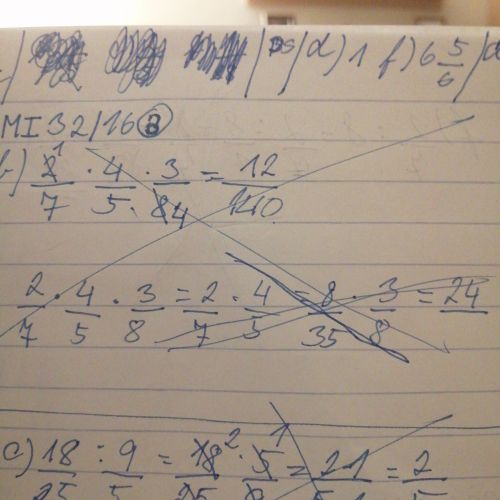 d) 1 f) 6 5/6
MI 32/16 8
b) 2 1/7 · 4/5 · 3/8 4 = 12/140
2/7 · 4/5 · 3/8 = 2/7 · 4/5 = 8/35 · 3/8 = 24
c) 18/25 : 9/5 = 18 2/25 · 5 1/9 = 2 1/5 1 = 2/5